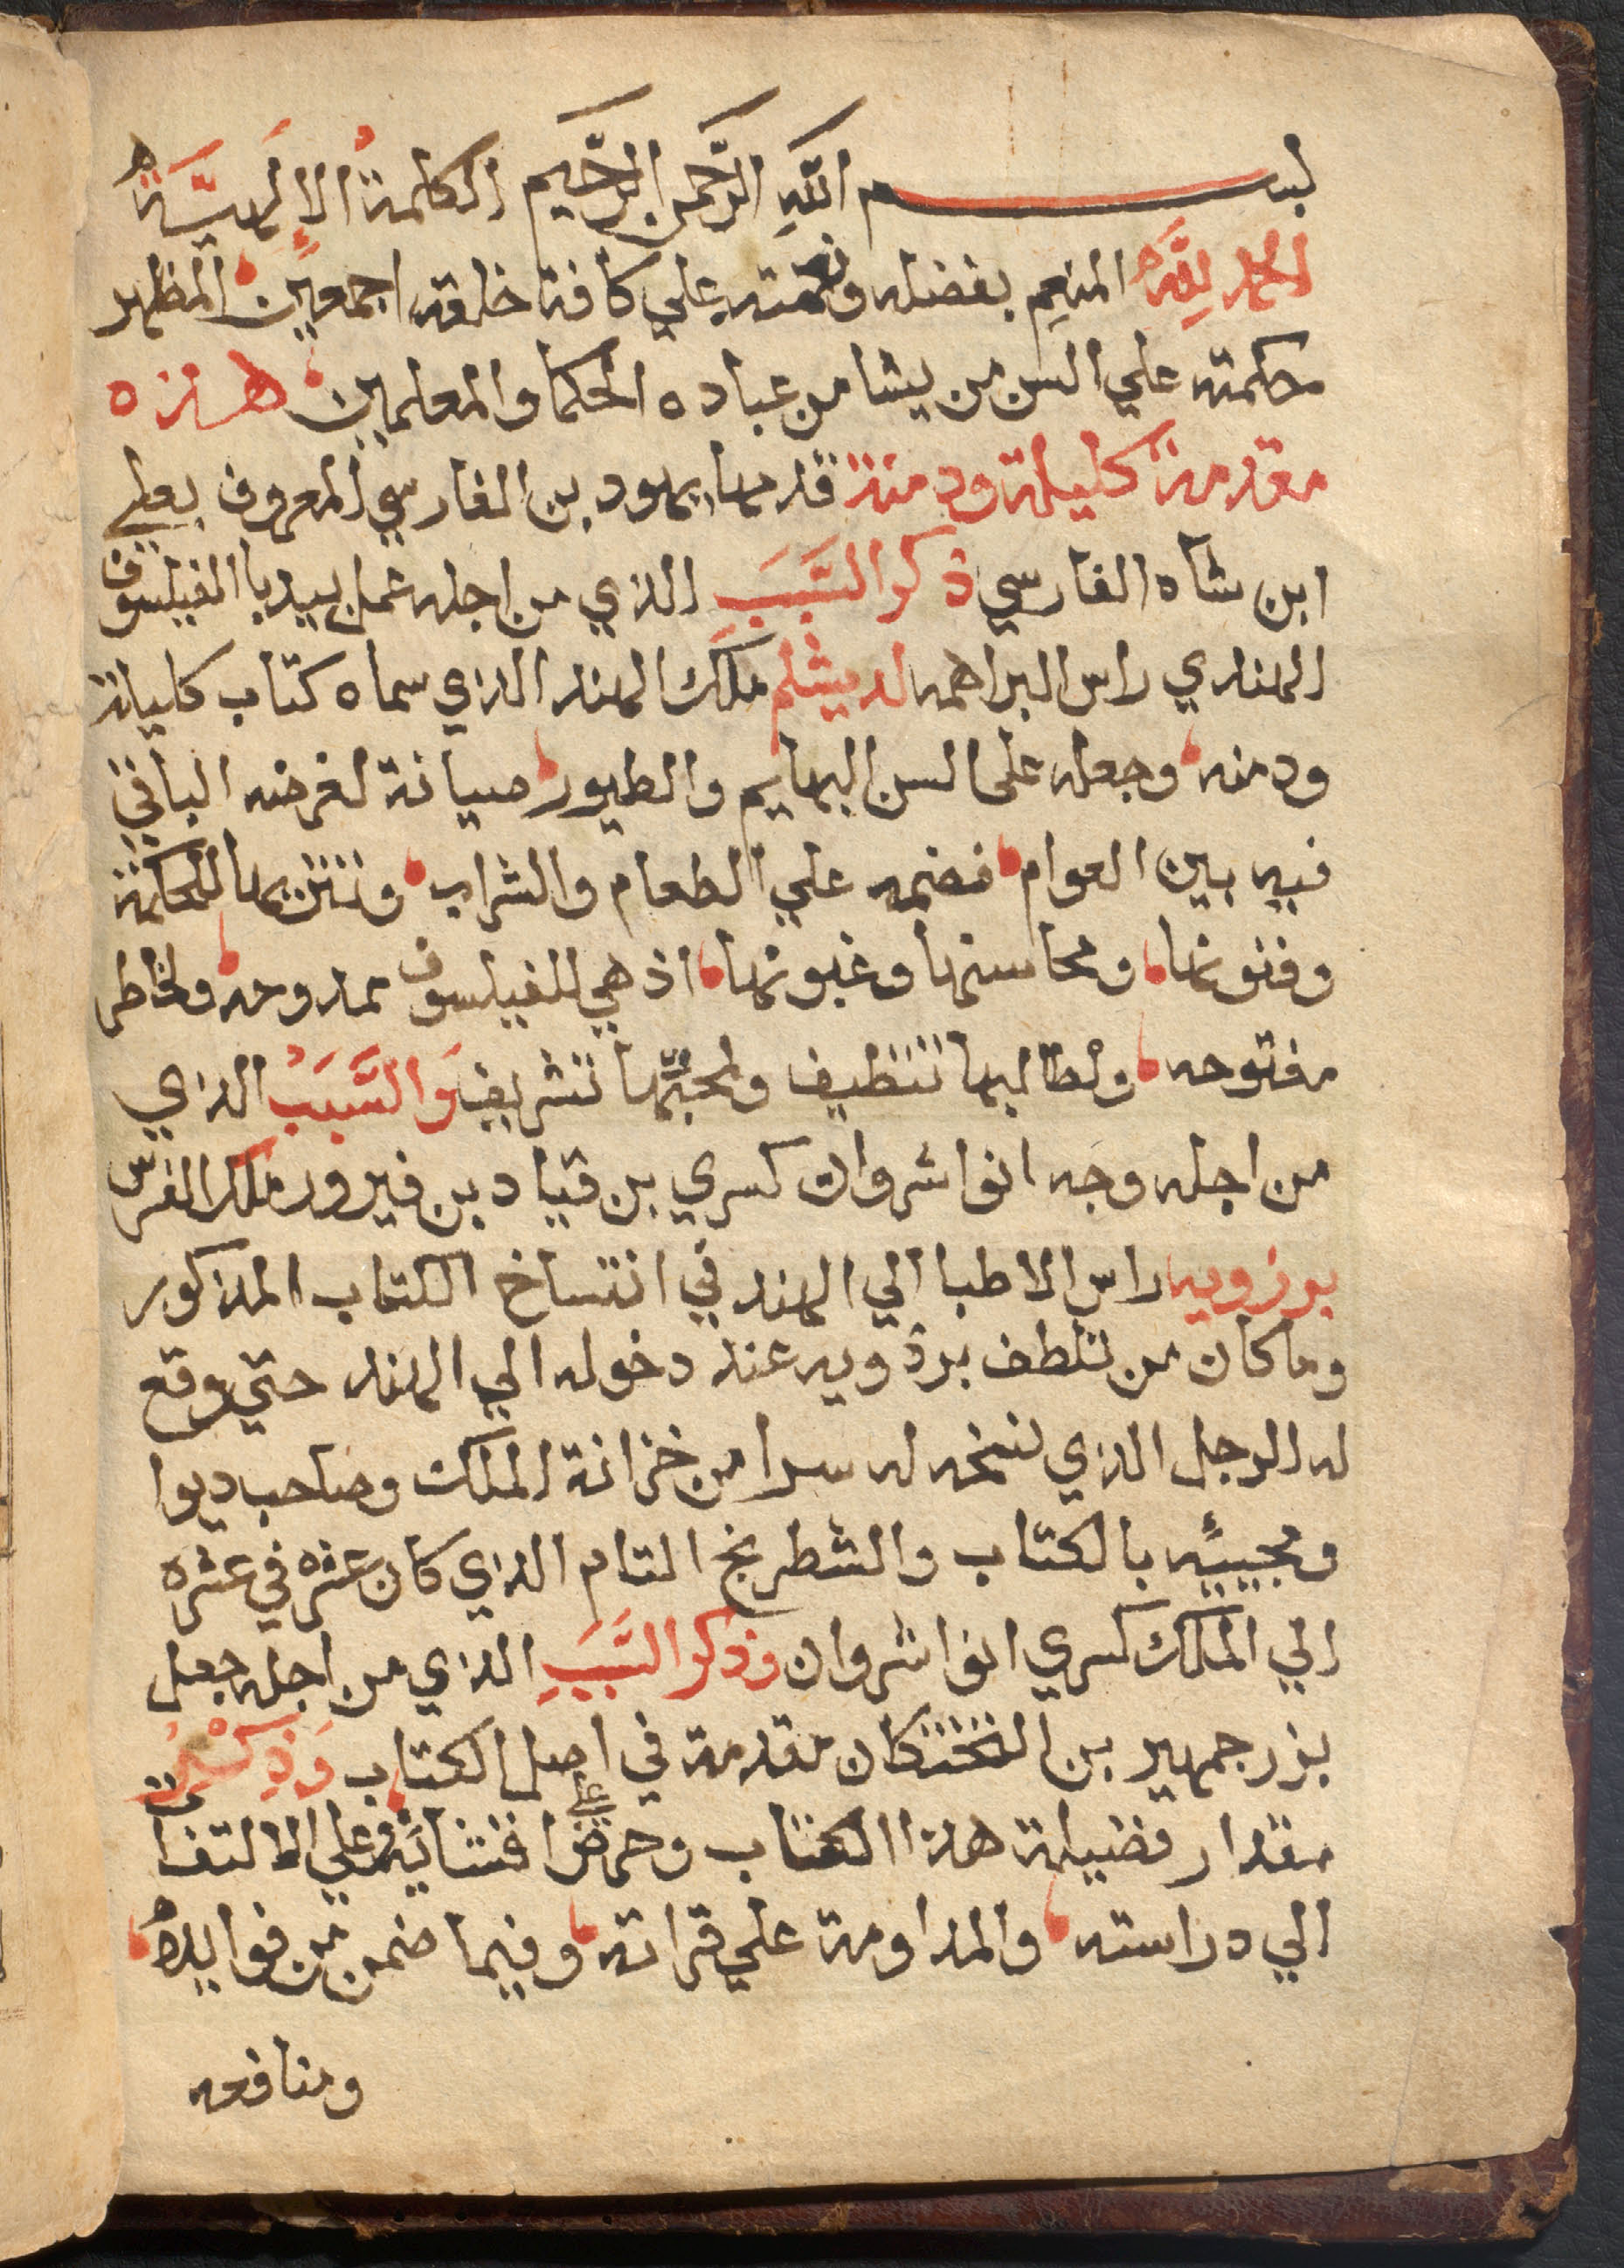 بسم اللهِ الرَّحمن الرَّحيم الكلمةُ الالَهيَّة
الحمد لِلَّه المنعِم بفضله ونعمته علي كافة خلقه اجمعين المظهر
حكمته علي السن من يشا من عباده الحكما والمعلمين هذه
مقدمة كليلة ودمنة قدمها بهود بن الفارسي المعروف بعلي
ابن شاه الفارسي ذكر السَّبَبَ الذي من اجله عمل بيدبا الفيلسوف
الهندي راس البراهمه لديشلم ملك الهند الذي سماه كتاب كليلة
ودمنه وجعله على السن البهايم والطيور صيانة لغرضه الباقي
فيه بين العوام فضمه علي الطعام والشراب وتنزيها للحكمة
وفنونها ومحاسنها وعيونها اذ هي للفيلسوف ممدوحه ولخاطر
مفتوحه ولطالبها تنظيف ولمحبِّها تشريف وَالسَّبَبُ الذي
من اجله وجه انواشروان كسري بن قباد بن فيرور ملك الفرس
برزويه راس الاطبا الي الهند في انتساخ الكتاب المذكور
وما كان من تلطف برذويه عند دخوله الي الهند حتي وقع
له الرجل الذي نسخه له سرا من خزانة الملك وصاحب ديوا
ومجييًه بالكتاب والشطرنج التام الذي كان عشره في عشره
الي الملك كسري انواشروان وذكر السَّبَبِ الذي من اجله جعل
بزرجمهير بن البختكان مقدمة في اصل الكتاب وَذِكْرُ
مقدار فضيلة هذا الكتاب وحض علي اقتنايه وعلي الالتفات
الي دراسته والمداومة علي قراته وفيما ضمن من فوايده
ومنافعه